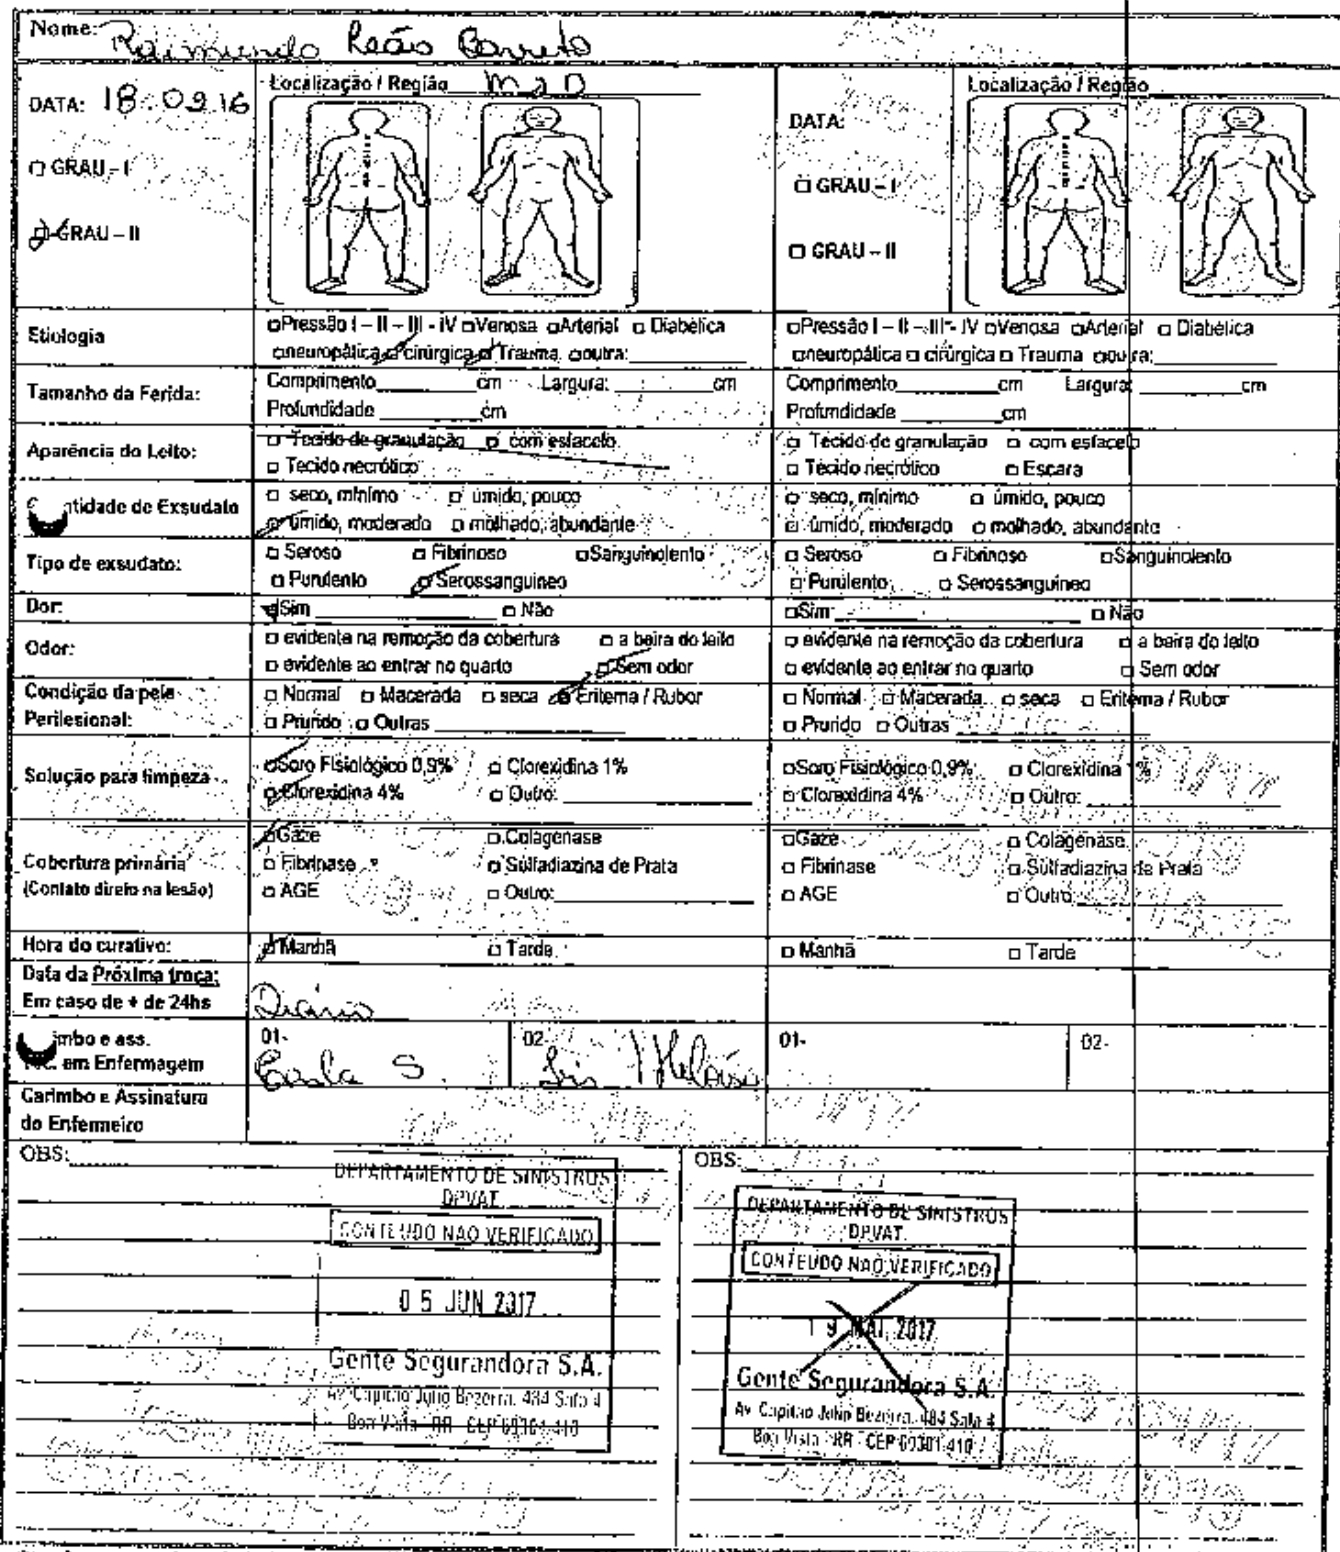 Nome: Raimundo Leão Barreto
DATA: 18.09.16
Localização / Região M D
DATA:
Localização / Região
GRAU – I
GRAU – I
GRAU – II
GRAU – II
Etiologia
Pressão I – II – III - IV Venosa Arterial Diabélica
neuropática cirúrgica Trauma outra:
Pressão I – II – III - IV Venosa Arterial Diabélica
neuropática cirúrgica Trauma outra:
Tamanho da Ferida:
Comprimento cm Largura: cm
Profundidade cm
Comprimento cm Largura: cm
Profundidade cm
Aparência do Leito:
Tecido de granulação com esfacelo
Tecido necrótico
Tecido de granulação com esfacelo
Tecido necrótico Escara
ntidade de Exsudato
seco, mínimo úmido, pouco
úmido, moderado molhado, abundante
seco, mínimo úmido, pouco
úmido, moderado molhado, abundante
Tipo de exsudato:
Seroso Fibrinoso Sanguinolento
Purulento Serossanguíneo
Seroso Fibrinoso Sanguinolento
Purulento Serossanguíneo
Dor:
Sim Não
Sim Não
Odor:
evidente na remoção da cobertura a beira do leito
evidente ao entrar no quarto Sem odor
evidente na remoção da cobertura a beira do leito
evidente ao entrar no quarto Sem odor
Condição da pele
Perilesional:
Normal Macerada seca Eritema / Rubor
Prurido Outras
Normal Macerada seca Eritema / Rubor
Prurido Outras
Solução para limpeza
Soro Fisiológico 0,9% Clorexidina 1%
Clorexidina 4% Outro:
Soro Fisiológico 0,9% Clorexidina 1%
Clorexidina 4% Outro:
Cobertura primária
(Contato direto na lesão)
Gaze Colagenase
Fibrinase Sulfadiazina de Prata
AGE Outro:
Gaze Colagenase
Fibrinase Sulfadiazina de Prata
AGE Outro:
Hora do curativo:
Manhã Tarde
Manhã Tarde
Data da Próxima troca:
Em caso de + de 24hs
Diário
imbo e ass.
em Enfermagem
01-
02-
01-
02-
S. Heloisa
Carimbo e Assinatura
do Enfermeiro
OBS:
OBS:
DEPARTAMENTO DE SINISTROS
DPVAT
CONTEUDO NAO VERIFICADO
05 JUN 2017
Gente Segurandora S.A.
Av. Capitao Julio Bezerra, 484 Sala 4
Boa Vista RR CEP 69301-410
DEPARTAMENTO DE SINISTROS
DPVAT
CONTEUDO NAO VERIFICADO
19 MAI, 2017
Gente Segurandora S.A.
Av. Capitao Julio Bezerra, 484 Sala 4
Boa Vista RR CEP 69301-410